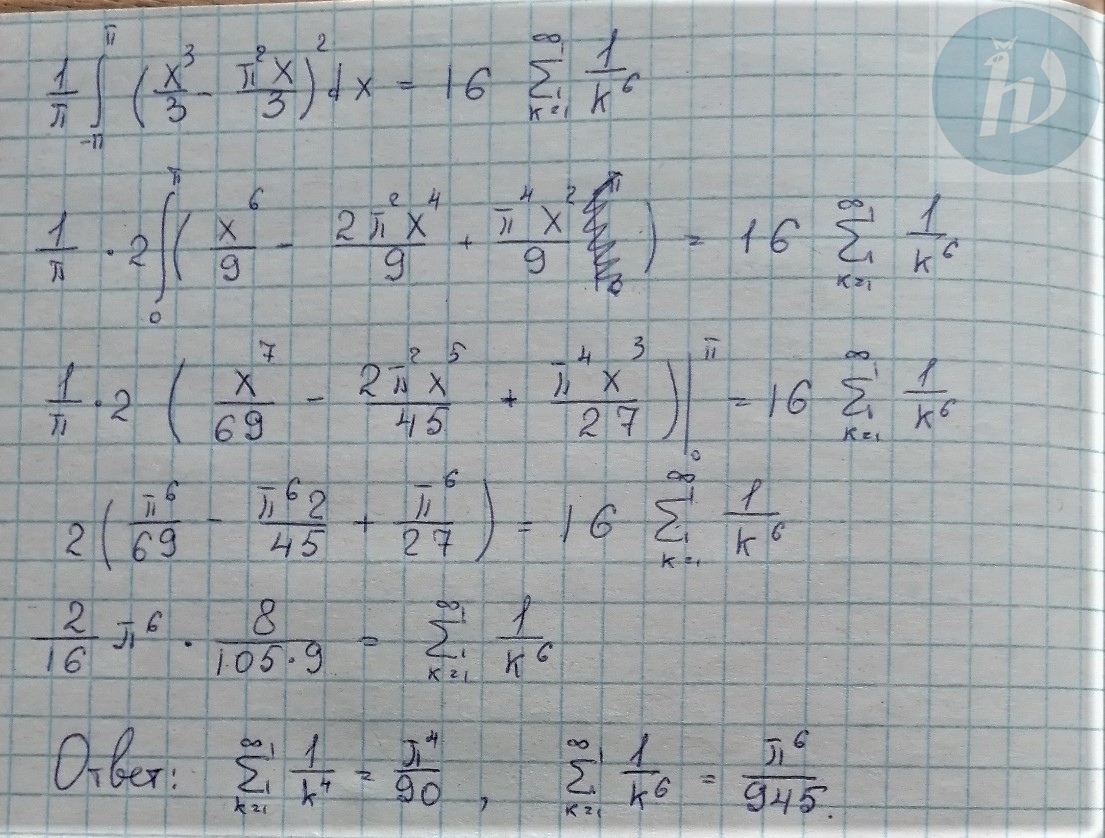 1/π ∫_{-π}^{π} (x³/3 - π²x/3)² dx = 16 ∑_{k=1}^{∞} 1/k⁶
1/π · 2 ∫_{0}^{π} (x⁶/9 - 2π²x⁴/9 + π⁴x²/9) = 16 ∑_{k=1}^{∞} 1/k⁶
1/π · 2 (x⁷/69 - 2π²x⁵/45 + π⁴x³/27)|_{0}^{π} = 16 ∑_{k=1}^{∞} 1/k⁶
2(π⁶/69 - π⁶2/45 + π⁶/27) = 16 ∑_{k=1}^{∞} 1/k⁶
2/16 π⁶ · 8/(105·9) = ∑_{k=1}^{∞} 1/k⁶
Ответ: ∑_{k=1}^{∞} 1/k⁴ = π⁴/90, ∑_{k=1}^{∞} 1/k⁶ = π⁶/945.